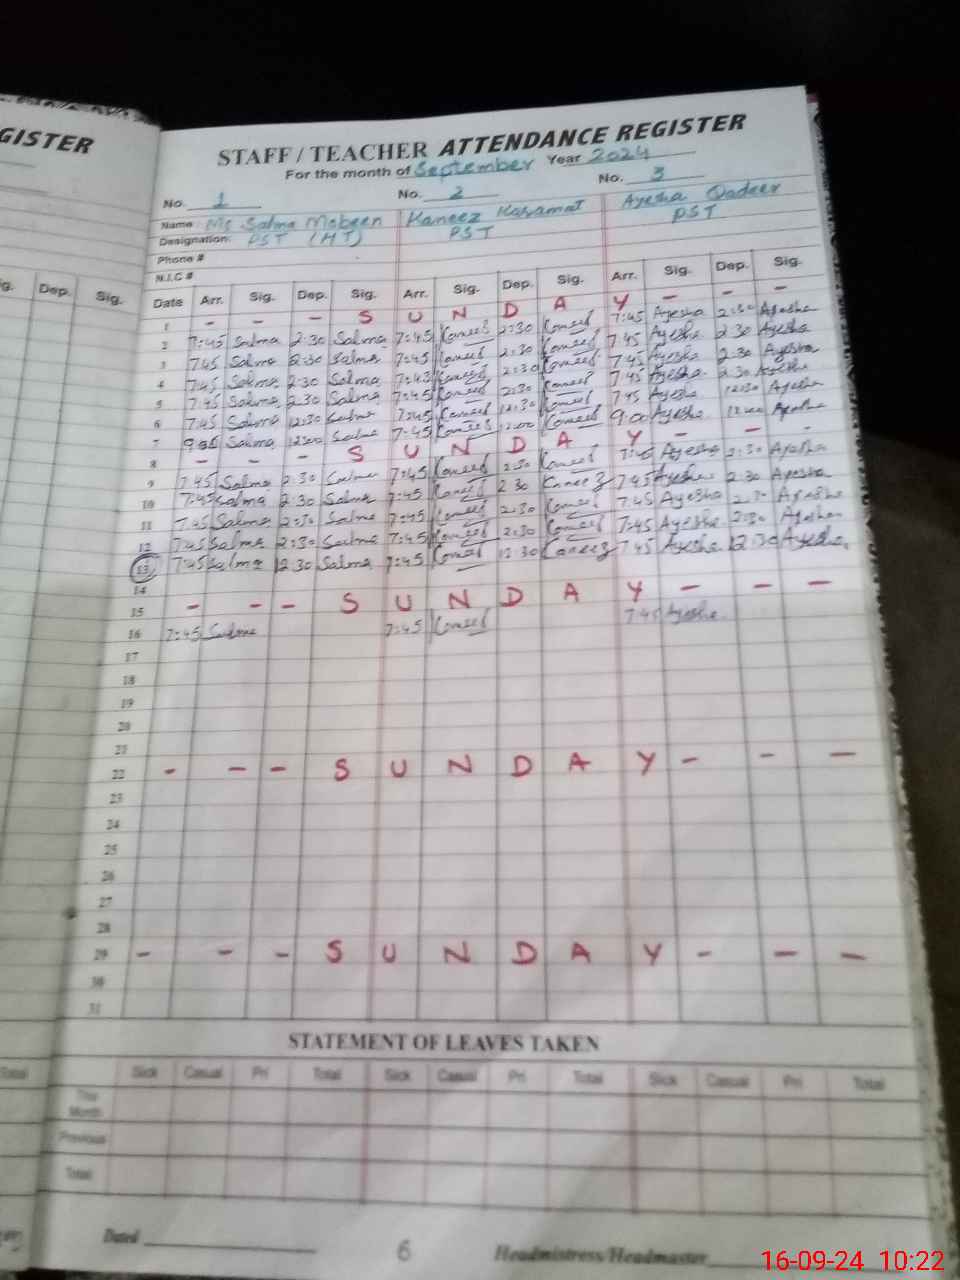 GISTER
STAFF / TEACHER ATTENDANCE REGISTER
For the month of September Year 2024
No. 1 No. 2 No. 3
Name: Ms Salma Mobeen Kaneez Karamat Ayesha Qadeer
Designation: PST (HT) PST PST
Phone #
N.I.C #
g. Dep. Sig. Date Arr. Sig. Dep. Sig. Arr. Sig. Dep. Sig. Arr. Sig. Dep. Sig.
1 - - - S U N D A Y - - -
2 7:45 Salma 2:30 Salma 7:45 2:30 7:45 Ayesha 2:30 Ayesha
3 7:45 Salma 2:30 Salma 7:45 2:30 7:45 Ayesha 2:30 Ayesha
4 7:45 Salma 2:30 Salma 7:45 2:30 7:45 Ayesha 2:30 Ayesha
5 7:45 Salma 2:30 Salma 7:45 2:30 7:45 Ayesha 2:30 Ayesha
6 7:45 Salma 12:30 Salma 7:45 12:30 7:45 Ayesha 12:30 Ayesha
7 Salma 12:00 Salma 7:45 12:00 9:00 Ayesha 12:00 Ayesha
8 - - - S U N D A Y - - -
9 7:45 Salma 2:30 Salma 7:45 2:30 7:45 Ayesha 2:30 Ayesha
10 7:45 Salma 2:30 Salma 7:45 2 30 Kaneez 7:45 Ayesha 2:30 Ayesha
11 7:45 Salma 2:30 Salma 7:45 2:30 7:45 Ayesha 2:30 Ayesha
12 7:45 Salma 2:30 Salma 7:45 2:30 7:45 Ayesha 2:30 Ayesha
13 7:45 Salma 12:30 Salma 7:45 12:30 Kaneez 7:45 Ayesha 12:30 Ayesha
14
15 - - - S U N D A Y - - -
16 7:45 Salma 7:45 7:45 Ayesha
17
18
19
20
21
22 - - - S U N D A Y - - -
23
24
25
26
27
28
29 - - - S U N D A Y - - -
30
31
STATEMENT OF LEAVES TAKEN
Total Sick Casual Pri Total Sick Casual Pri Total Sick Casual Pri Total
This Month
Previous
Total
Dated 6 Headmistress/Headmaster
16-09-24 10:22